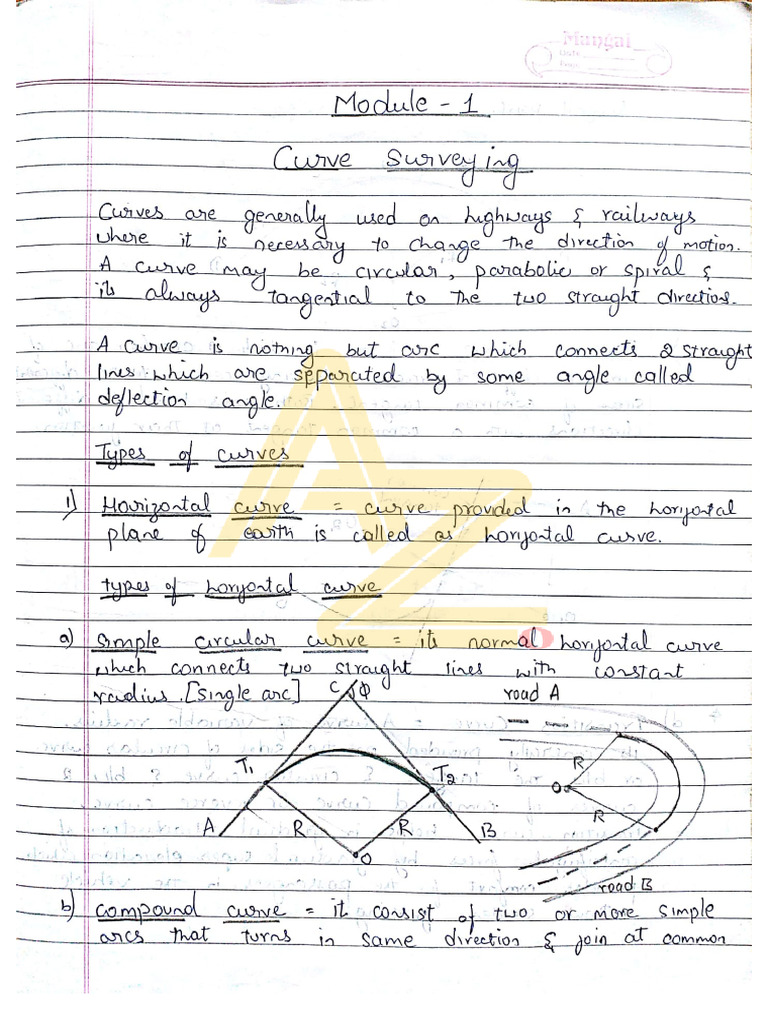 Mangai
Date
Page
Module - 1
Curve Surveying
Curves are generally used on highways & railways
where it is necessary to change the direction of motion.
A curve may be circular, parabolic or spiral &
its always tangential to the two straight direction.
A curve is nothing but arc which connects 2 straight
lines which are separated by some angle called
deflection angle.
Types of curves
1) Horizontal curve = curve provided in the horizontal
plane of earth is called as horizontal curve.
types of horizontal curve
a) Simple circular curve = its normal horizontal curve
which connects two straight lines with constant
radius. [single arc]
C ϕ
road A
T1
T2
A
R
R
B
O
R
O
R
road B
b) compound curve = it consist of two or more simple
arcs that turns in same direction & join at common
AZ